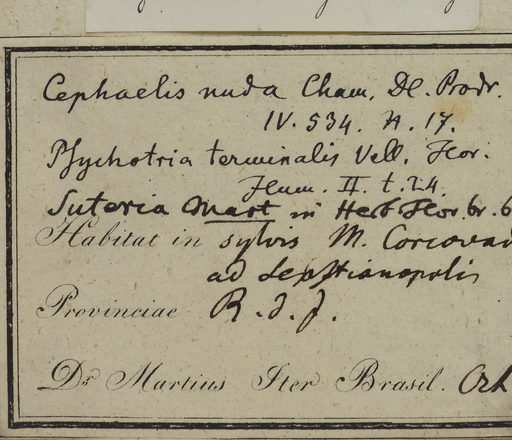 Cephaelis nuda Cham. DC. Prodr.
IV. 534. n. 17.
Psychotria terminalis Vell. Flor.
Flum. II. t. 24.
Suteria Mart in Herb Flor. br. 6
Habitat in sylvis M. Corcovad
ad Sebastianopolis
Provinciae R. d. J.
Dr. Martius Iter Brasil.